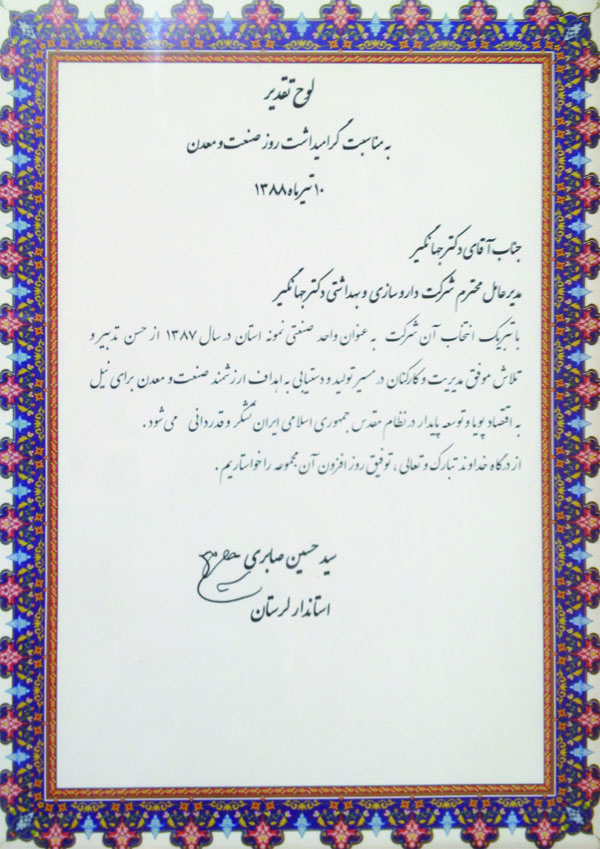 لوح تقدیر
به مناسبت گرامیداشت روز صنعت و معدن
۱۰ تیرماه ۱۳۸۸
جناب آقای دکتر جهانگیر
مدیرعامل محترم شرکت داروسازی و بهداشتی دکتر جهانگیر
با تبریک انتخاب آن شرکت به عنوان واحد صنعتی نمونه استان در سال ۱۳۸۷ از حسن تدبیر و
تلاش موفق مدیریت و کارکنان در مسیر تولید و دستیابی به اهداف ارزشمند صنعت و معدن برای نیل
به اقتصاد پویا و توسعه پایدار در نظام مقدس جمهوری اسلامی ایران تشکر و قدردانی می شود .
از درگاه خداوند تبارک و تعالی ، توفیق روز افزون آن مجموعه را خواستاریم .
سید حسین صابری
استاندار لرستان